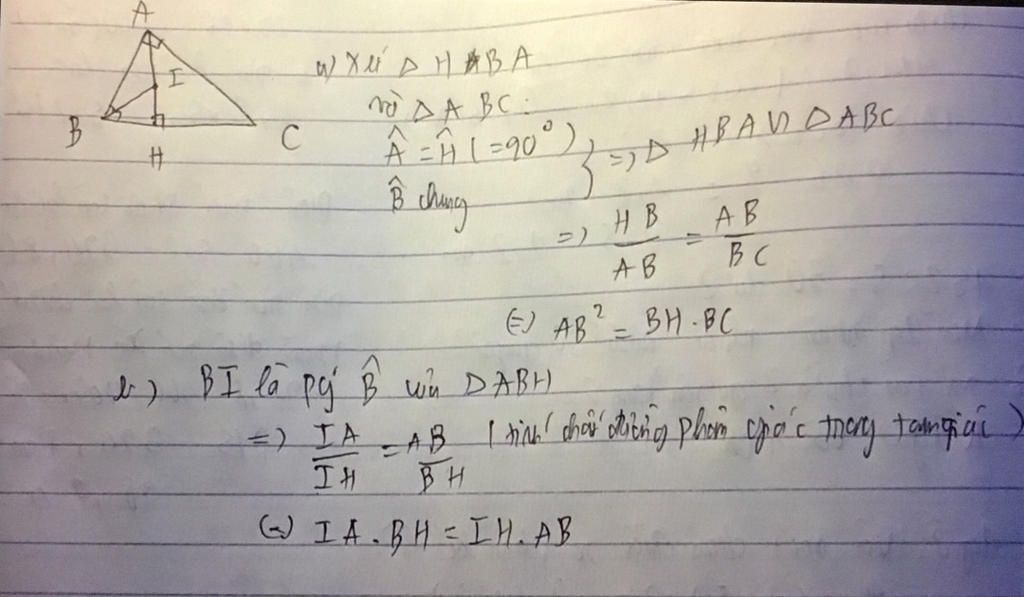 A
I
B
H
C
a) Xét Δ HBA
và Δ ABC:
Â = Ĥ (=90°)
B̂ chung
} => Δ HBA ∽ Δ ABC
=> HB/AB = AB/BC
(=) AB² = BH . BC
b) BI là pg B̂ của Δ ABH
=> IA/IH = AB/BH (tính chất đường phân giác trong tam giác)
(=) IA . BH = IH . AB